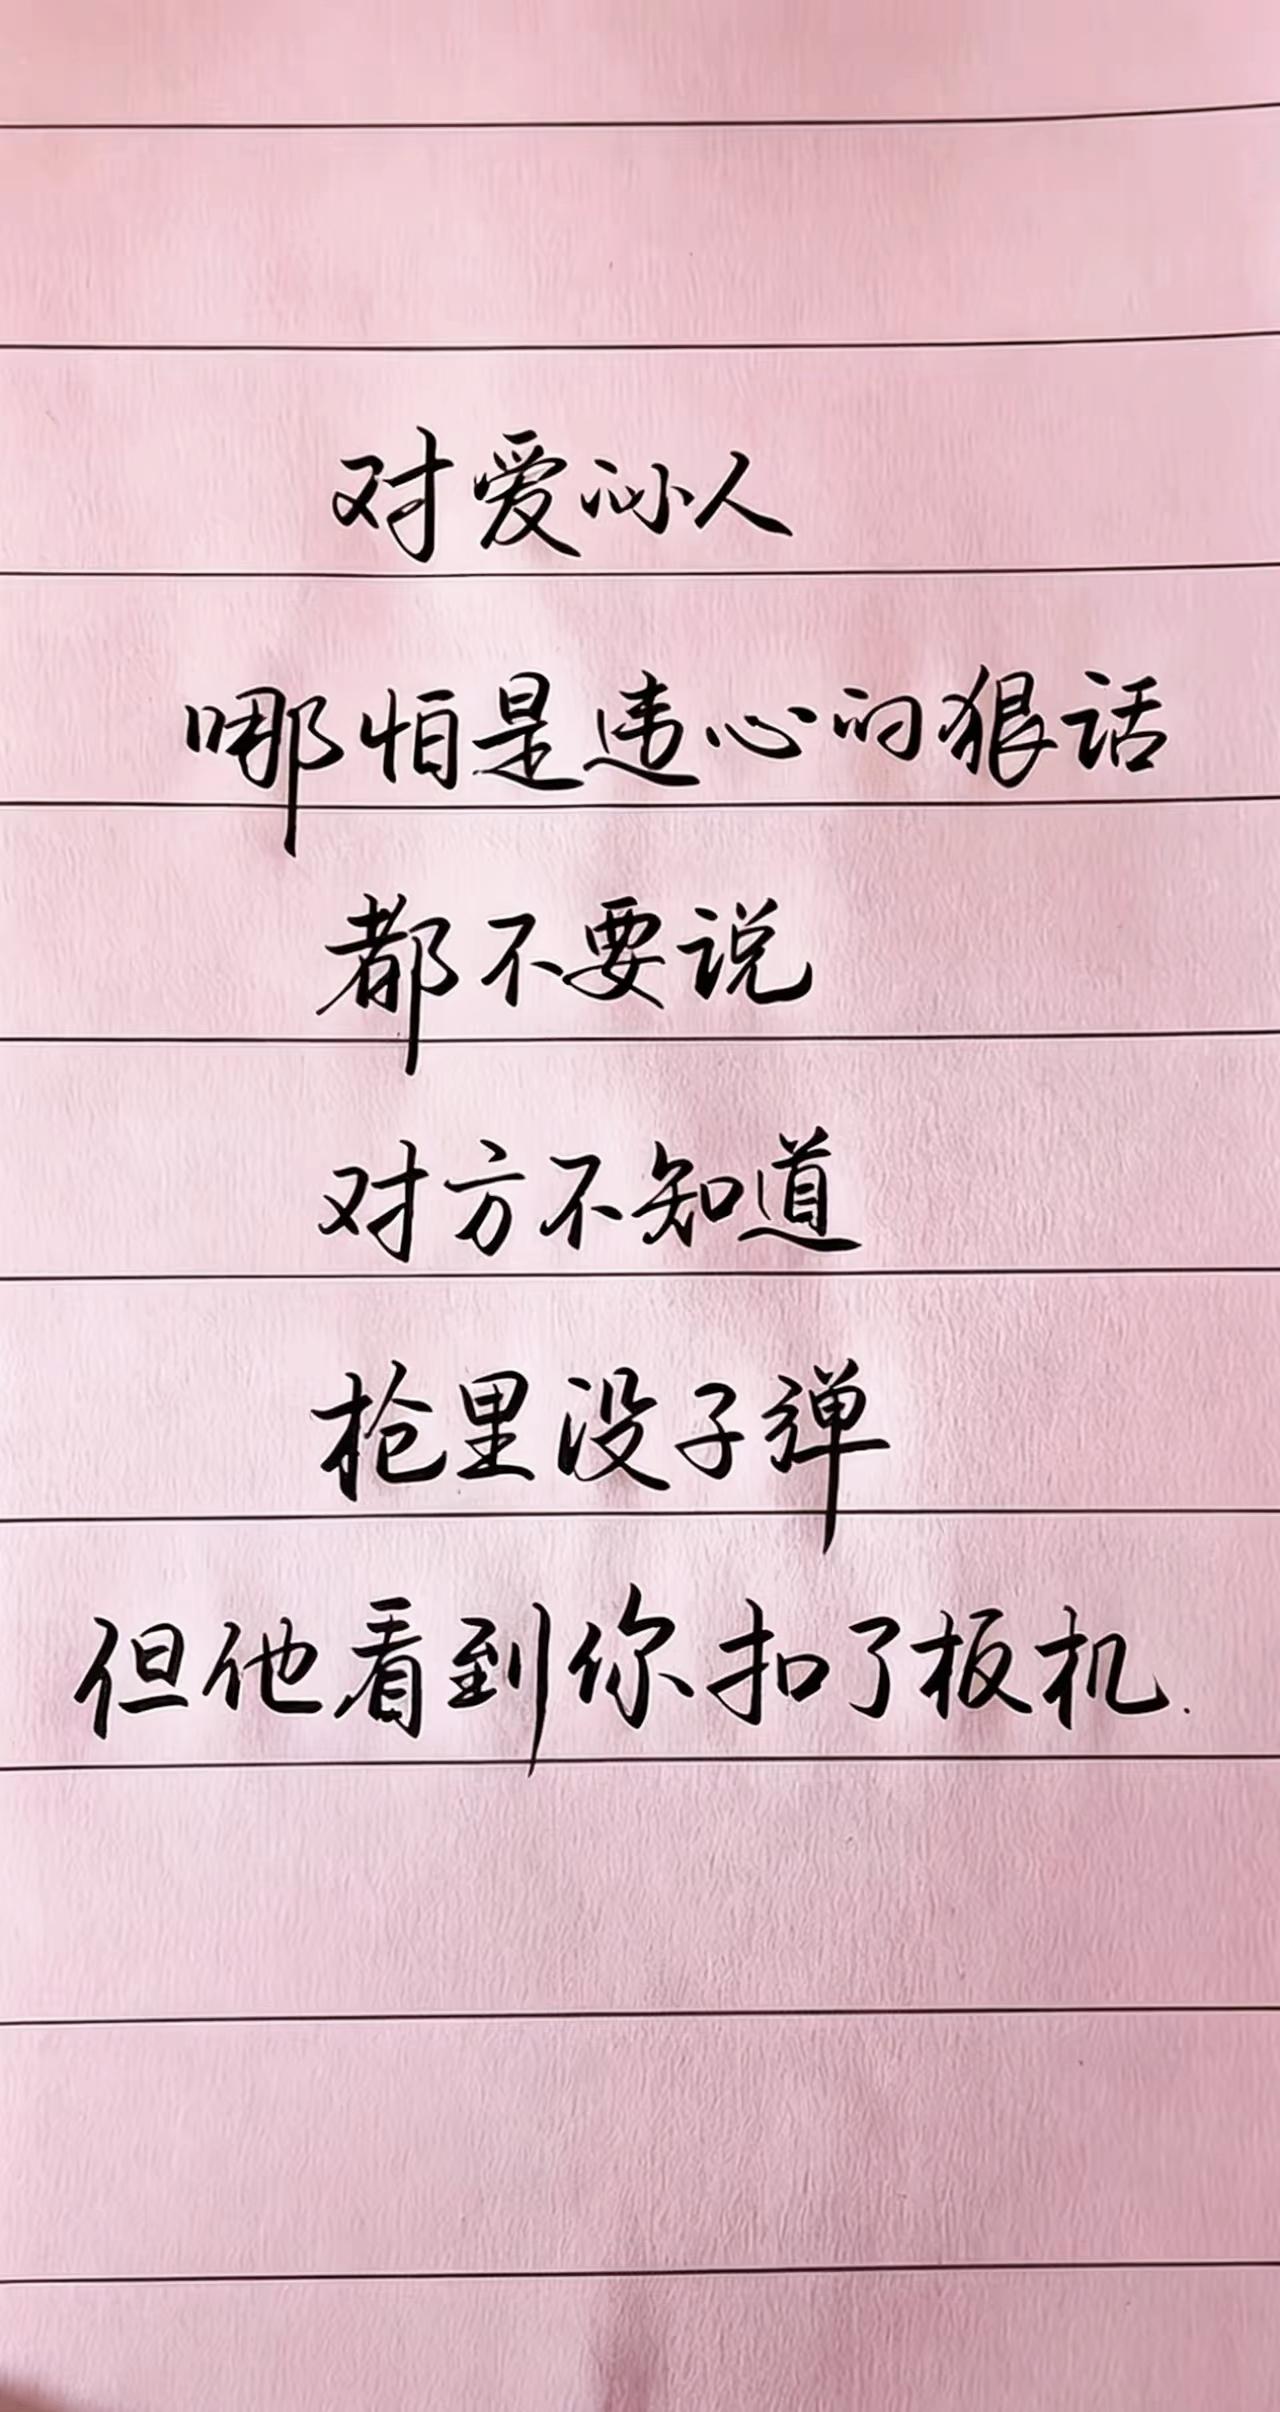 对爱的人
哪怕是违心的狠话
都不要说
对方不知道
枪里没子弹
但他看到你扣了板机.